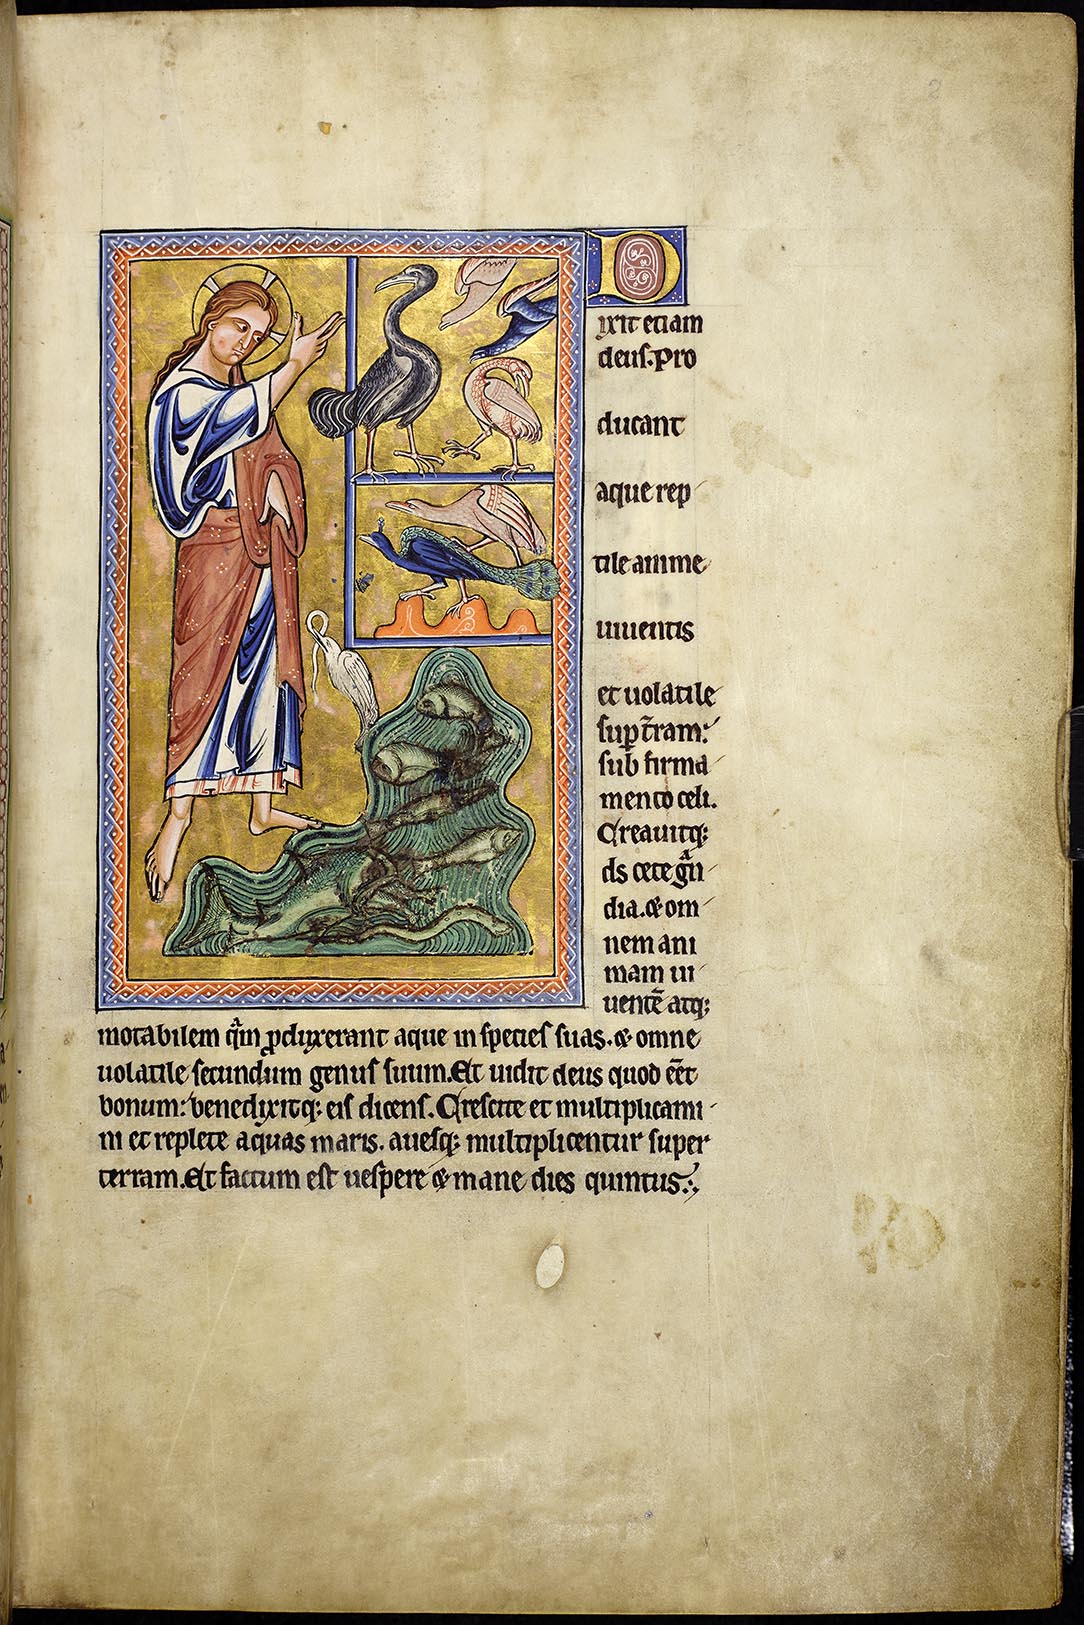 2
Dixit etiam
deus. Pro
ducant
aque rep
tile anime
uiuentis
et uolatile
sup t̄ram:
sub firma
mento celi.
Creauitq;
ds cete gͣn
dia. & om
nem ani
mam ui
uentē atq;
motabilem qͣm ꝓduxerant aque in species suas. & omne
uolatile secundum genus suum. Et uidit deus quod eēt
bonum: benedixitq; eis dicens. Crescite et multiplicami
ni et replete aquas maris. auesq; multiplicentur super
terram. Et factum est uespere & mane dies quintus.